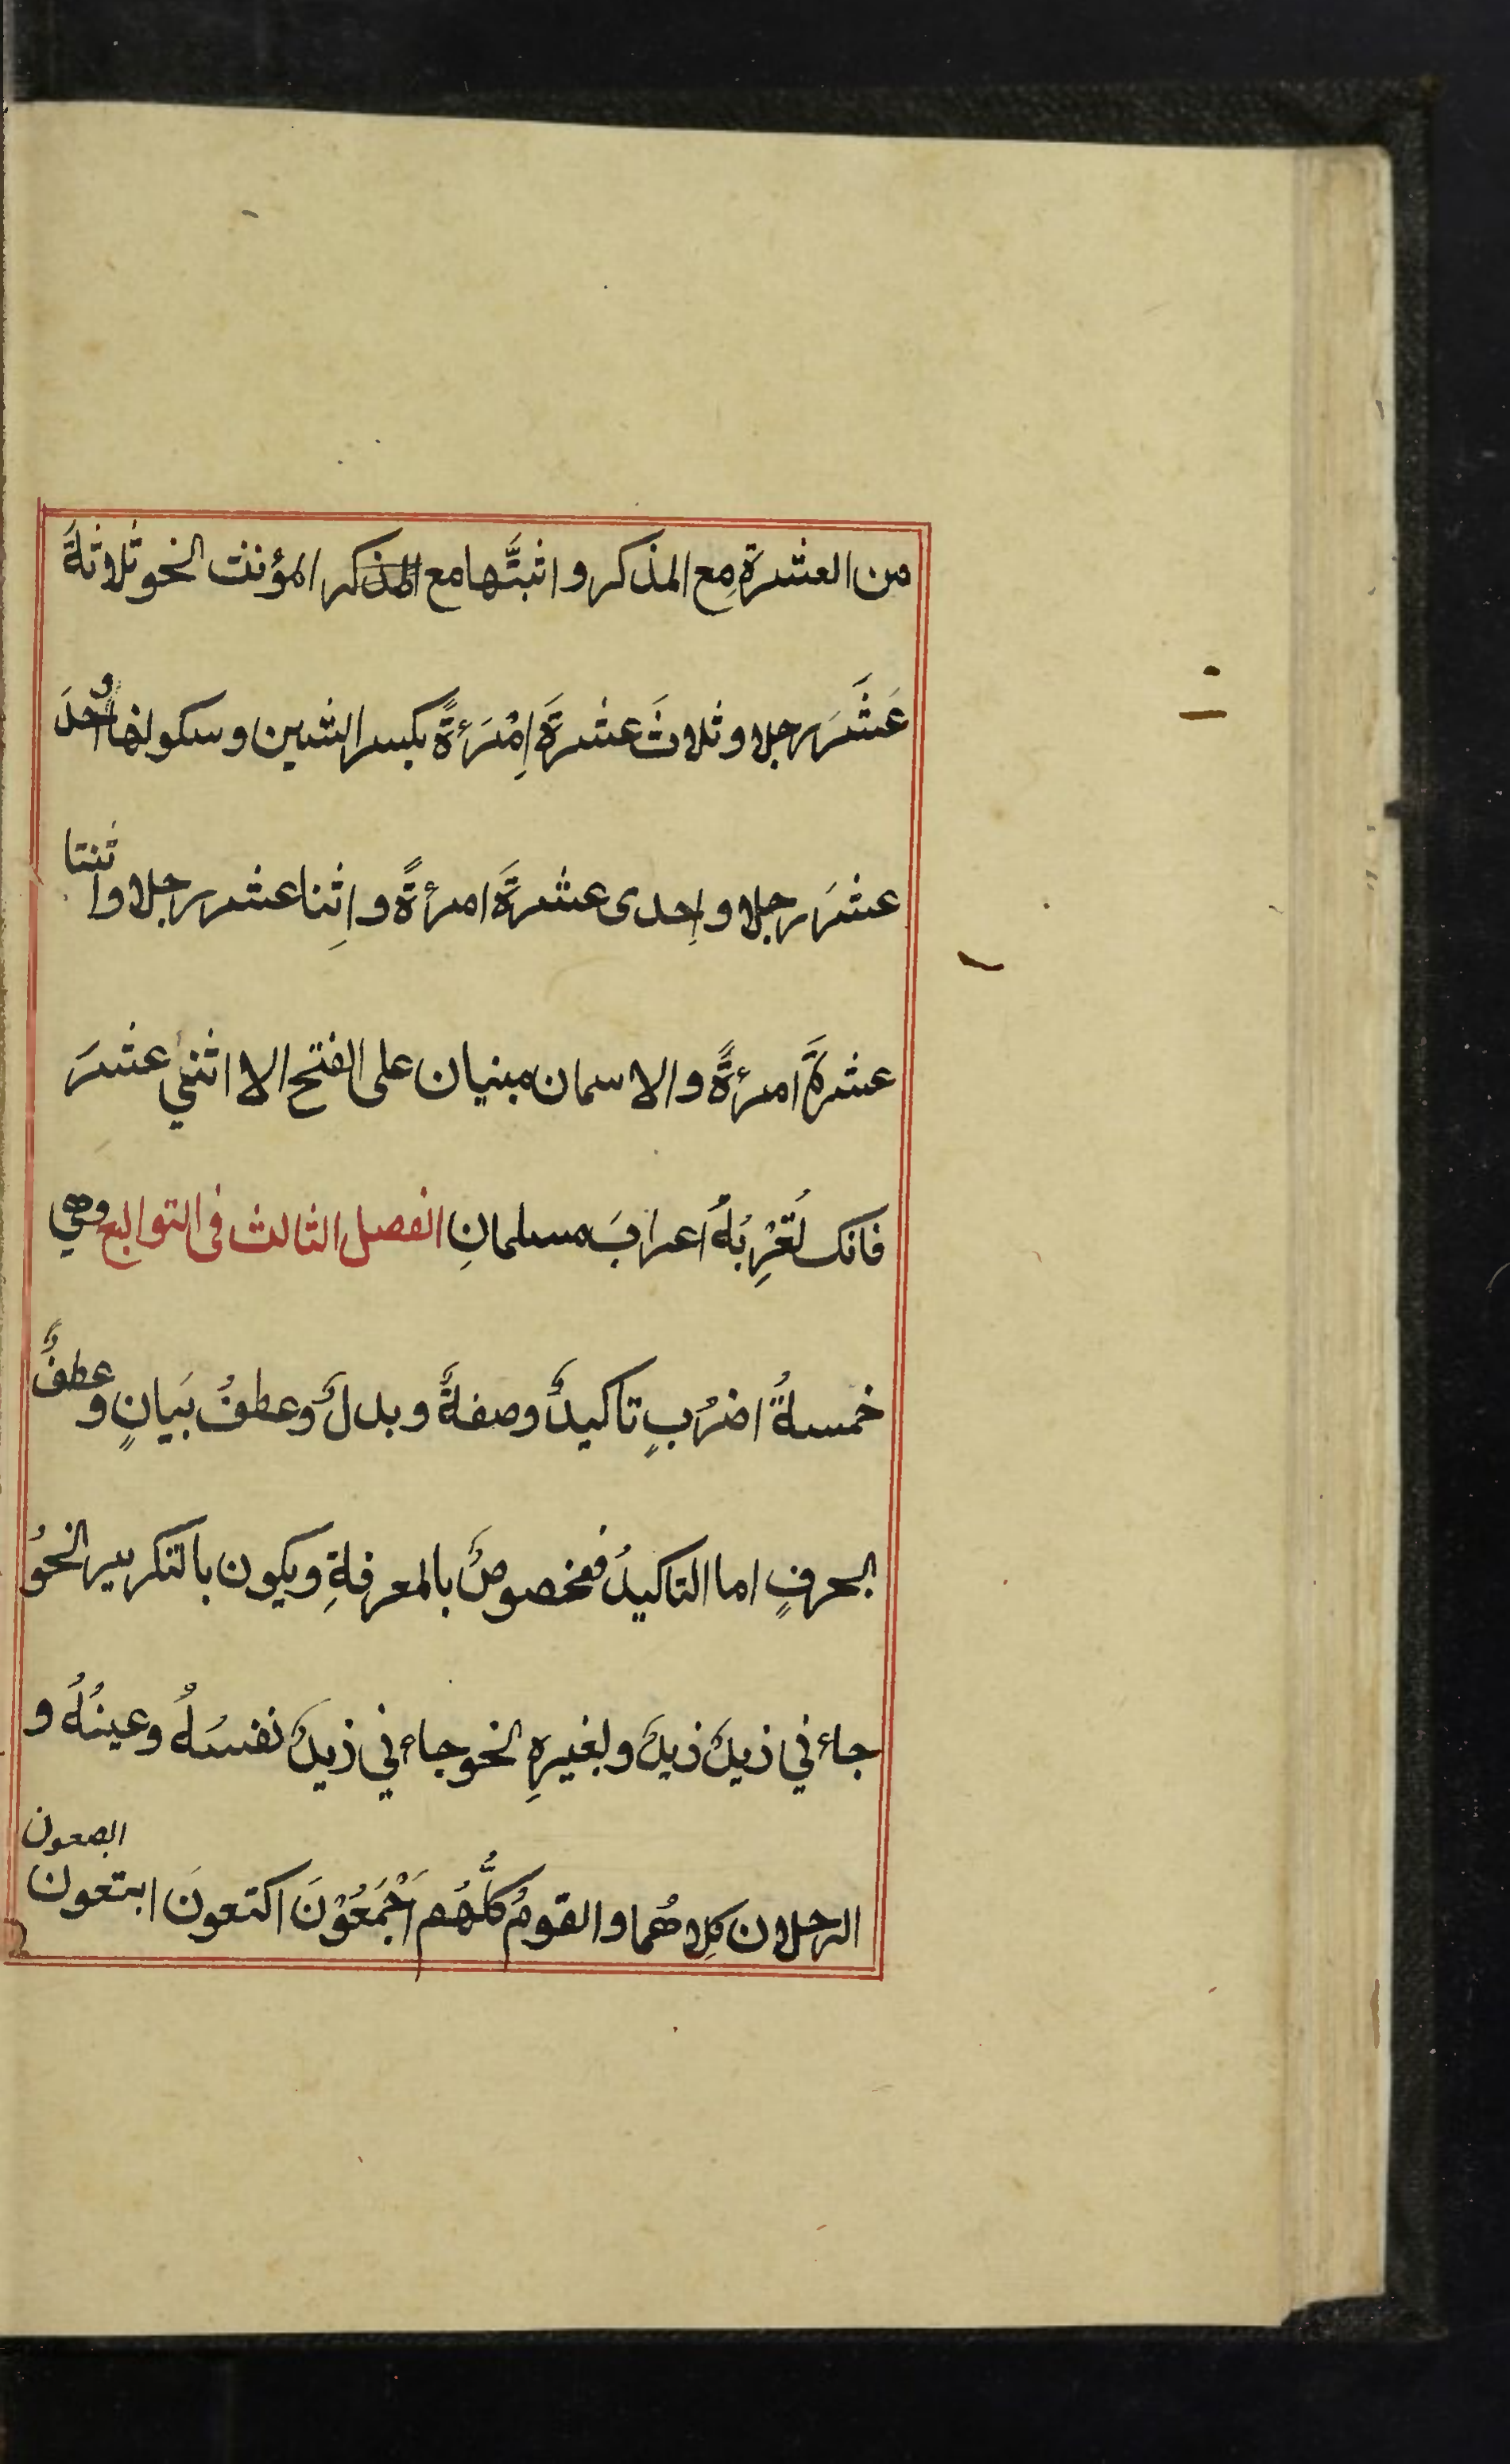 من العشرة مع المذكر واثبتَّها مع المذكر المؤنث النحو ثلاثةَ
عَشَرَ رجلا وثلاثَ عشرةَ اِمْرَءةً بكسر الشين وسكونها واَحدَ
عشرَ رجلا واِحدى عشرةَ امرءةً واِثنا عشر رجلا واثنتا
عشرةَ امرءةً والاسمان مبنيان على الفتح الا اثني عشرَ
فانك تُعْرِبُهُ اعرابَ مسلمانِ الفصل الثالث فى التوابع وهي
خمسةُ اضرُبٍ تاكيدٌ وصفةٌ وبدلٌ وعطفُ بَيانٍ وعطفٌ
بحرفٍ اما التاكيدُ فمخصوصٌ بالمعرفةِ ويكون بالتكرير النحوُ
جاءني زيدٌ زيدٌ وبغيرهِ النحو جاءني زيدٌ نفسُهُ وعينُهُ و
الرجلان كِلاهُما والقومُ كلُّهُم اَجْمَعُوْنَ اكتعونَ ابتعون
ابصعون